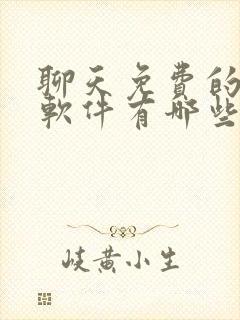 聊天免費的
軟件有哪些
岐黄小生